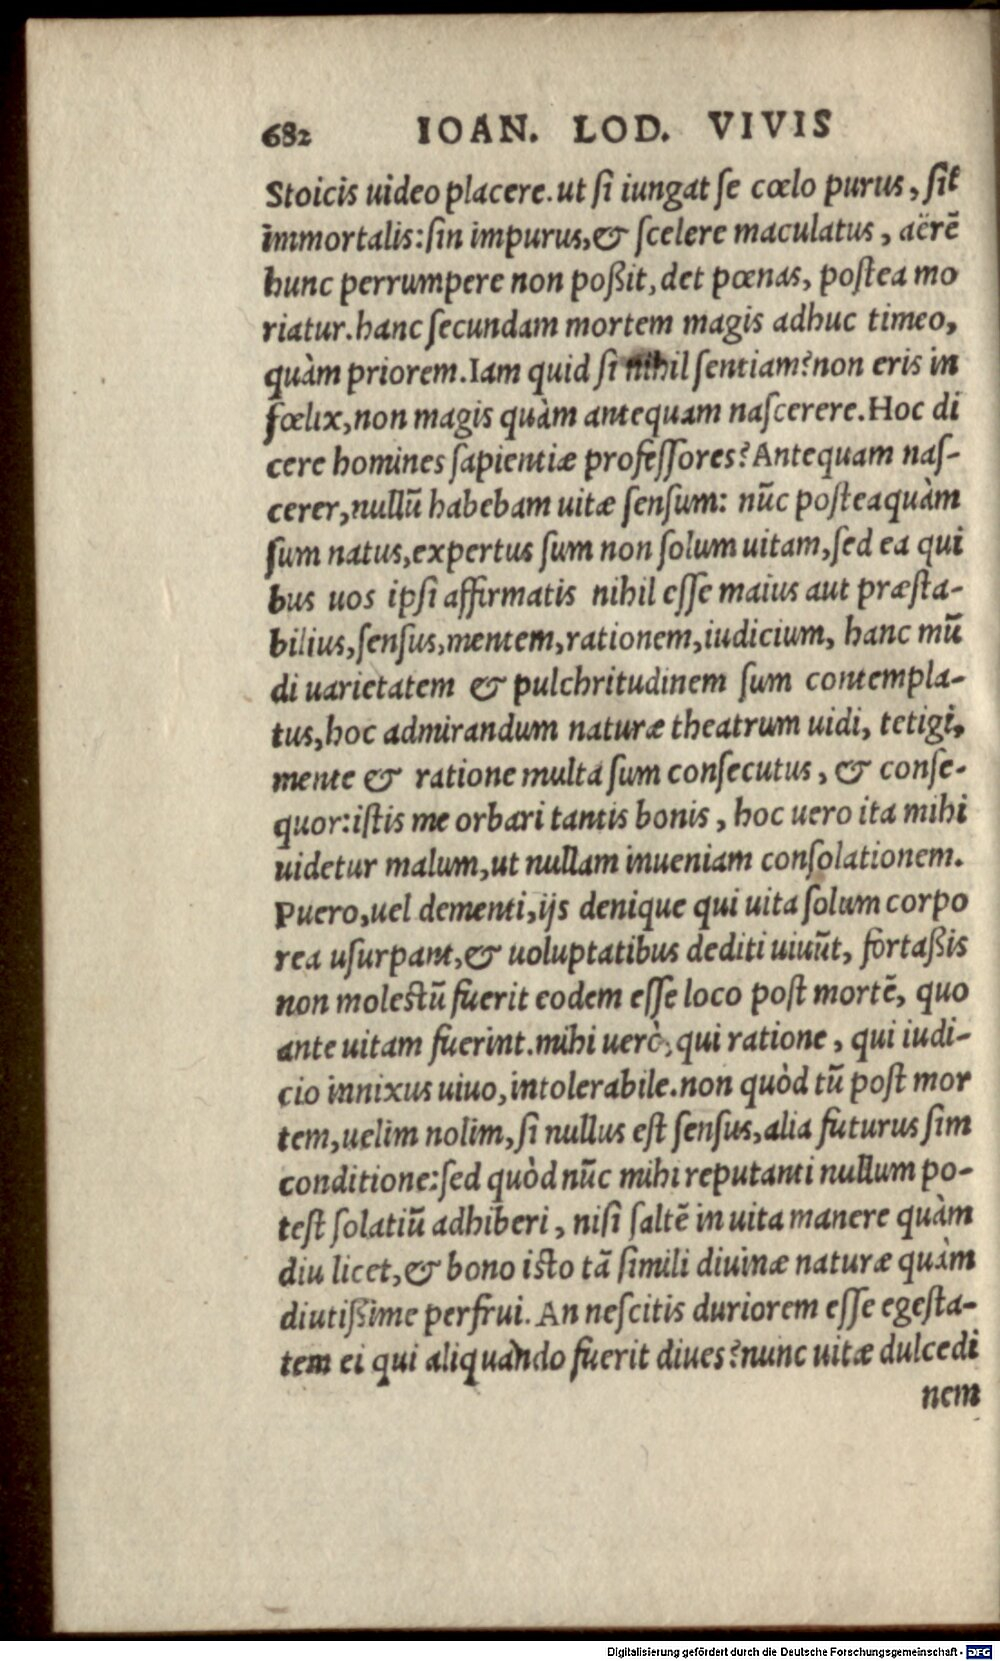 682 IOAN. LOD. VIVIS
Stoicis uideo placere. ut si iungat se cœlo purus, sit
immortalis: sin impurus, & scelere maculatus, aërē
hunc perrumpere non poßit, det pœnas, postea mo
riatur. hanc secundam mortem magis adhuc timeo,
quàm priorem. Iam quid si nihil sentiam? non eris in
fœlix, non magis quàm antequam nascerere. Hoc di
cere homines sapientiæ professores? Antequam nas-
cerer, nullū habebam uitæ sensum: nūc posteaquàm
sum natus, expertus sum non solum uitam, sed ea qui
bus uos ipsi affirmatis nihil esse maius aut præsta-
bilius, sensus, mentem, rationem, iudicium, hanc mū
di uarietatem & pulchritudinem sum contempla-
tus, hoc admirandum naturæ theatrum uidi, tetigi,
mente & ratione multa sum consecutus, & conse-
quor: istis me orbari tantis bonis, hoc uero ita mihi
uidetur malum, ut nullam inueniam consolationem.
Puero, uel dementi, ijs denique qui uita solum corpo
rea usurpant, & uoluptatibus dediti uiuūt, fortaßis
non molestū fuerit eodem esse loco post mortē, quo
ante uitam fuerint. mihi uerò, qui ratione, qui iudi-
cio innixus uiuo, intolerabile. non quòd tū post mor
tem, uelim nolim, si nullus est sensus, alia futurus sim
conditione: sed quòd nūc mihi reputanti nullum po-
test solatiū adhiberi, nisi saltē in uita manere quàm
diu licet, & bono isto tā simili diuinæ naturæ quàm
diutißime perfrui. An nescitis duriorem esse egesta-
tem ei qui aliquàndo fuerit diues? nunc uitæ dulcedi
nem
Digitalisierung gefördert durch die Deutsche Forschungsgemeinschaft - DFG